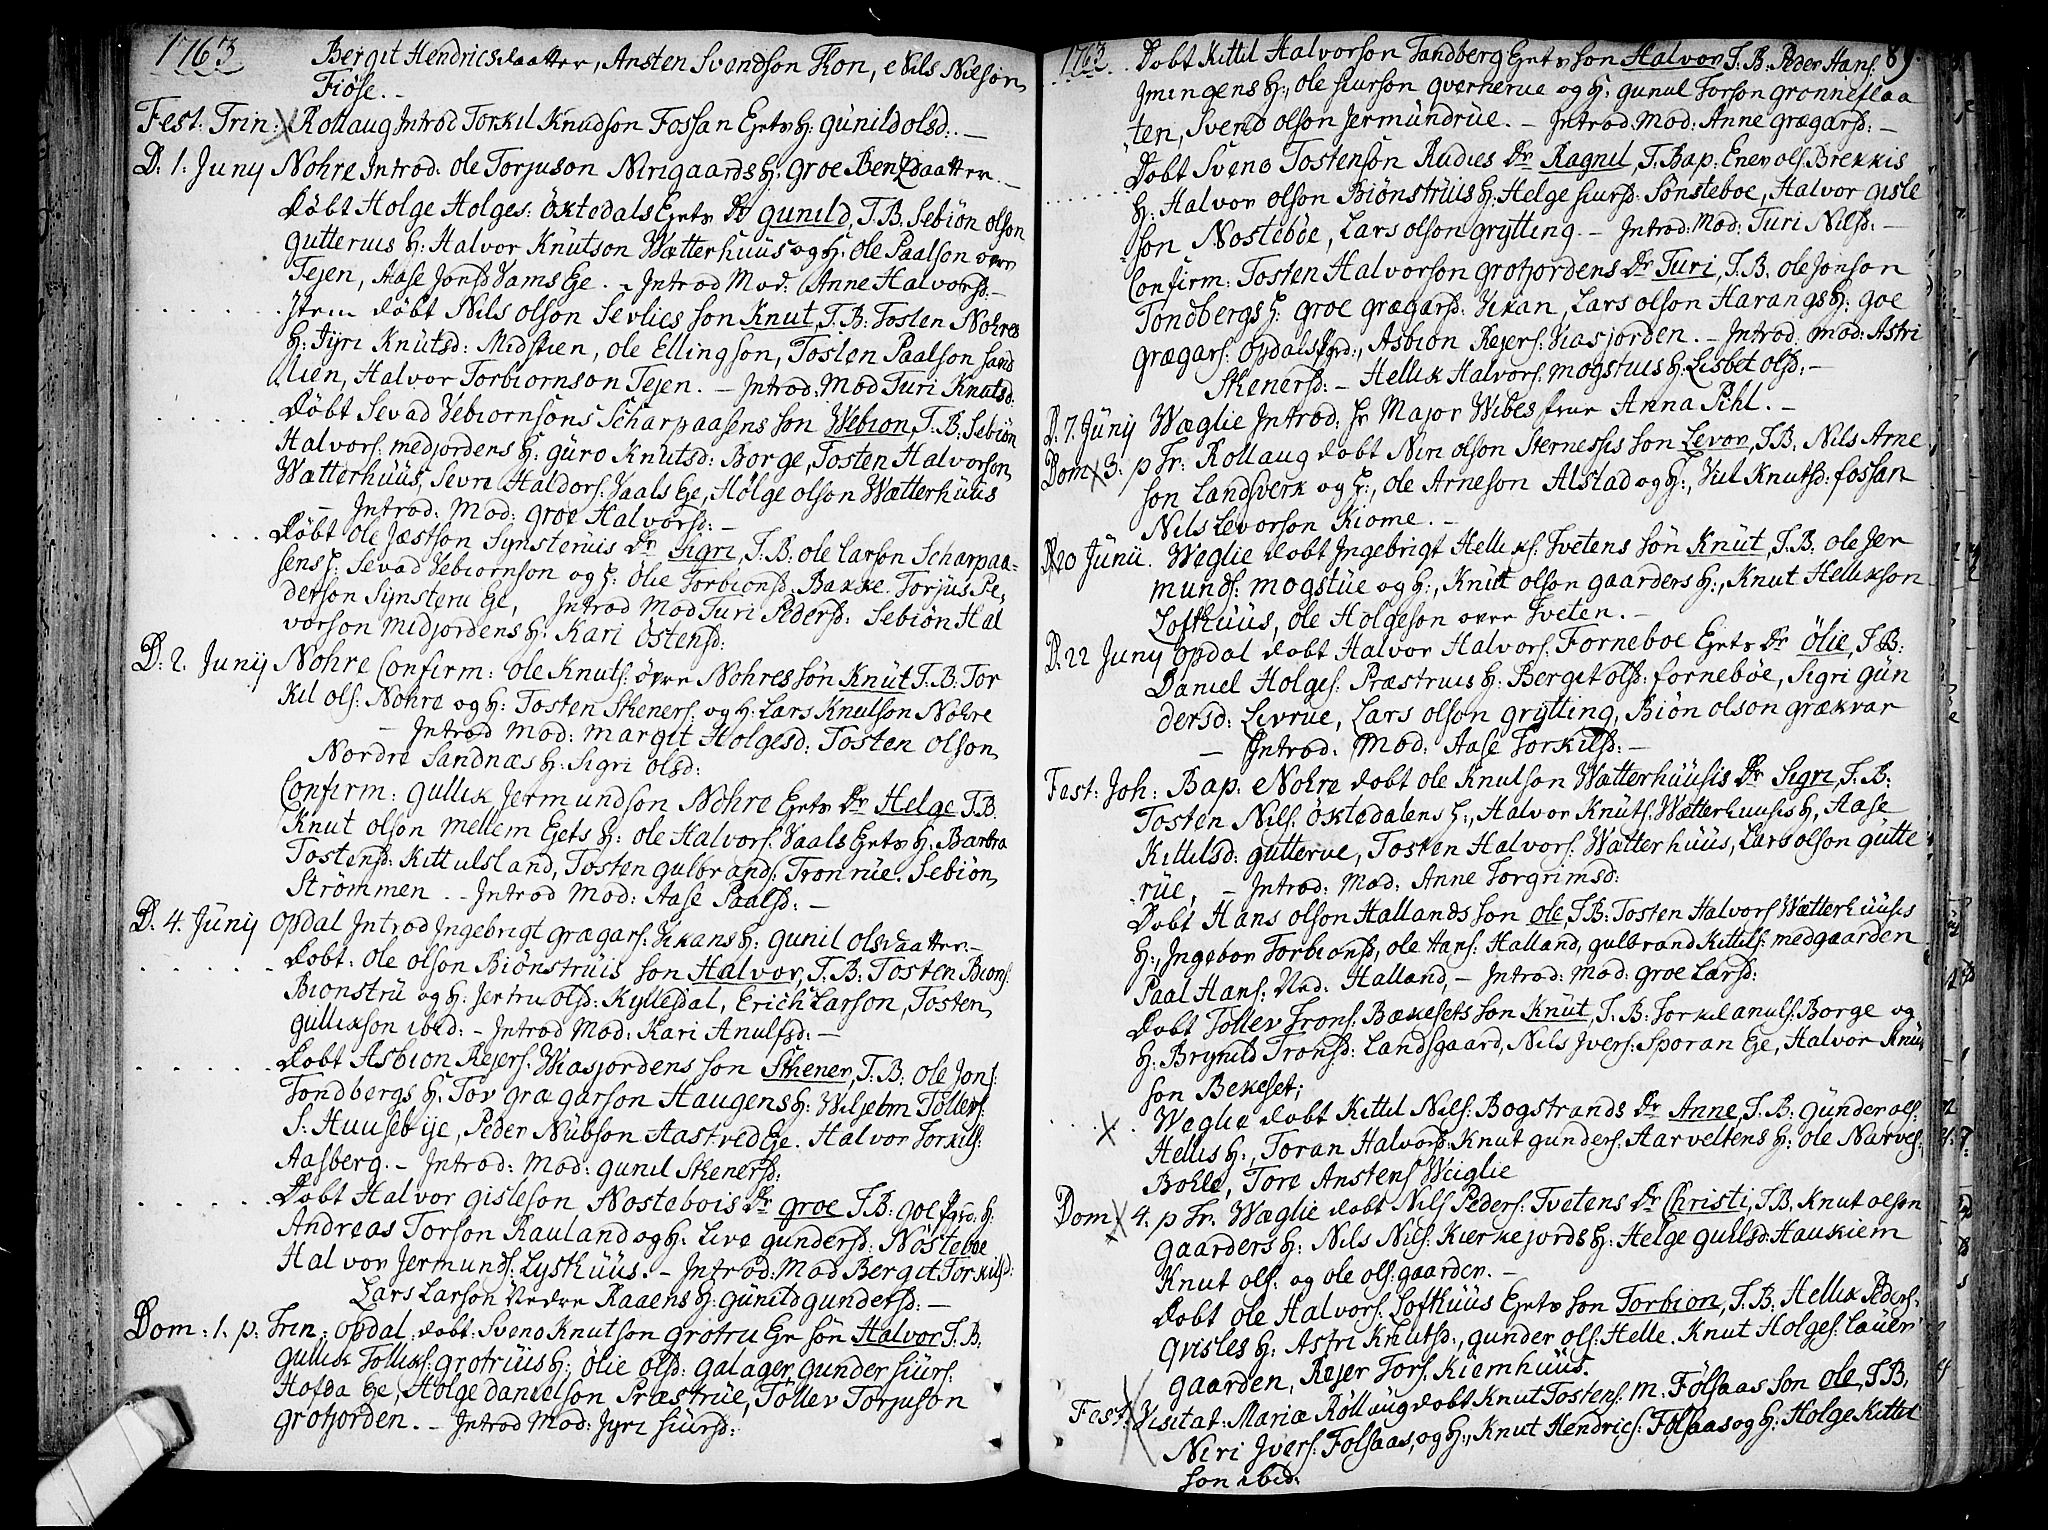 1763
Bergit Hendricsdaatter, Ansten Svendson Kon, Nils Nilson
Fiöse.
Fest: Trin: Rollaug Introd Torkil Knudson Fossan Ejets H: gunild olsd: —
D. 1. Junij Nohre Introd: ole Torjuson Nirigaards H: groe Bentzdaatter. —
Döbt Holge Holges: öktedals Ejets Dr gunild, T.B: Sebiön olson
gutterues H: Halvor Knutson Wætterhuus og H: ole Paalson over
Tejen, Aase Jonsd Vams Eje. - Introd Mod: Anne Halvorsd: —
Item döbt Nils olson Sevlies son Knut, T.B: Tosten Nohres
H: Jyri Knutsd: Midstien, ole Ellingson, Tosten Paalson Sand
Mien, Halvor Torbiornson Tejen. — Introd: Mod Turi Knutsd:
Döbt Sevad Vebiornsons Scharpaasens son Webion, T.B: Sebiön
Halvors: medjordens H: guro Knutsd: Borge, Tosten Halvorson
Wætterhuus, Sevre Haldors: Vaals Eje, Holge olson Wætterhuus
— Introd: Mod: groe Halvorsd: —
Döbt ole Jæstson Synsteruis Dr Sigri, T.B: ole Larson Scharpaa-
sens H: Sevad Vebiornson og H: ölie Torbionsd: Bakke. Torjus Pe,
derson Synsteru Eje, Introd Mod Turi Pedersd: Sebiön Hal
vorson midjordens H: Kari östensd:
D: 2. Junij Nohre Confirm: ole Knuts: övre Nohres sön Knut T.B: Tor
kil ols: Nohre og H: Tosten Skeners: og H: Lars Knutson Nohre
— Introd Mod: Margit Holgesd: Tosten olson
Nordre Sandnæs H: Sigri olsd:
Confirm: gullik Jermundson Nohre Ejets Dr Helge T.B.
Knut olson mellem Ejets H: ole Halvors: Vaals Ejets H: Barbra
Tostensd: Kittulsland, Tosten gulbrands: Tronrüe. Sebiön
Strömmen. - Introd Mod: Aase Paalsd: —
D. 4. Junij opdal Introd Ingebrigt grægars: Vikans H: gunil olsdaatter. —
Dobt: ole olson Biönstruis son Halvor, T.B: Tosten Bions:
Bionstru og H: Jertru olsd: Kyllesdal, Erich Larson, Tosten
gullikson ibid: — Introd Mod: Kari Anulfsd: —
Dobt Asbion Rejers: Wiasjordens son Skener, T.B: ole Jons:
Tondbergs H: Tor grægarson Haugens H: Wiljelm Tollefs:
S. Huusebije, Peder Nubson Aastved Eje. Halvor Torkils:
Aasberg. — Introd: Mod: gunil Skenersd:
Dobt Halvor gisleson Nostebois Dr groe T.B: goe fgrd: H:
Andreas Torson Rauland og H: Live gundersd: Nöstebøe
Halvor Jermunds: Lyskuus. — Introd: Mod Bergit Torkilsd:
Lars Larson Nedre Raaens H: gunild gundersd: —
Dom: 1. p: Trin: opdal dobt: Svend Knutson grotru Eje sön Halvor T.B:
gullik Tolliks: grotruis H: ölie olsd: galager, gunder siurs:
Hofda Eje, Holge danielson Præstrüe, Tollev Torjuson
grofjorden. — Introd Mod: Jyri Siursd:
1763. 89.
Dobt Kittil Halvorson Tandberg Ejets son Halvor T.B: Peder Hans:
Imingens H:, ole siurson qvernerue og H: gunul Torson gronneflaa
ten, Svend olson Jermundrüe. — Introd: Mod: Anne grægarsd: —
Dobt Svend Tostenson Rudies Dr Ragnil, T. Bap: Enev ols: Brekkis
H: Halvor olson Biönstruis H: Helge siursd: Sönsteboe, Halvor gisle
son Nosteböe, Lars olson grytting. — Introd: Mod: Turi Nilsd: —
Confirm: Tosten Halvorson grofjordens Dr Turi, T.B. ole Jonson
Tondbergs H: groe grægarsd: Vikan, Lars olson Harangs H: goe
grægars: opdals fgrd:, Asbion Rejers: Viasjorden. — Introd: Mod: Astri
Skenersd: — Hellik Halvors: mogstuis H: Lisbet olsd: —
D. 7. Junij Wæglie Introd: Hr Major Wibes frue Anna Pihl. —
Dom 3. p Tr: Rollaug dobt Niri olson Sternessis son Levor, T.B. Nils Arne
son Landsverk og H:, ole Arneson Alstad og H:, Viel Knutsd: fossan
Nils Levorson Kiome. —
D 20 Junii. Weglie dobt Ingebrigt Helliks: Tvetens sön Knut, T.B: ole Jer
munds: mogstüe og H:, Knut olson gaarders H:, Knut Hellikson
Lofthuus, ole Holgeson over Tveten. —
D. 22 Junij opdal dobt Halvor Halvors: Forneboe Ejets Dr ölie, T.B:
Daniel Holges: Præstruis H: Bergit olsd: forneböe, Sigri gün
dersd: Levrue, Lars olson grytting, Biön olson grækvar
— Introd: Mod: Aase Torkilsd: —
Fest: Joh: Bap: Nohre dobt ole Knutson Wætterhuusis Dr Sigri, T.B:
Tosten Nils: öktedalens H:, Halvor Knuts: Wætterhuusis H, Aase
Kittilsd: gutterue, Tosten Halvors: Wætterhuus, Lars olson gutte
rüe, — Introd: Mod: Anne Torgrimsd:
Dobt Hans olson Hallands son ole, T.B: Tosten Halvors Wætterhuusis
H:, Ingebor Torbionsd, ole Hans: Halland, gulbrand Kittils: medgaarden
Paal Hans: Ned: Halland, — Introd: Mod: groe Larsd:
Dobt Tollev Trons: Bækesets son Knut, T.B: Torkil anuls: Borge og
H: Brynild Tronsd: Landsgaard, Nils Ivers: Sporan Eje, Halvor Knut
son Bekeset;
Weglie dobt Kittil Nils: Bogstrands Dr Anne, T.B: Gunder ols:
Hellis H:, Toran Halvorsd: Knut gunders: Aarveltens H: ole Narves:
Bohle, Tore Anstens Weiglie
Dom 4. p Tr. Wæglie dobt Nils Peders: Tvetens Dr Christi, T.B. Knut olson
gaarders H: Nils Nils: Kierkejords H: Helge gullsd: Haukiem
Knut ols: og ole ols: gaarden. —
Dobt ole Halvors: Lofthuus Ejets son Torbion, T.B: Hellik Peders:
Qvisles H: Astri Knutsd:, gunder ols: Helle. Knut Holges: Lauer
gaarden, Rejer Tors: Kiemhuus.
Fest: Visitat: Mariæ Rollaug dobt Knut Tostens: M. Folsaas son ole, T.B,
Niri Ivers: Folsaas, og H:, Knut Hendrics: Folsaas og H: Holge Kittil
son ibid: